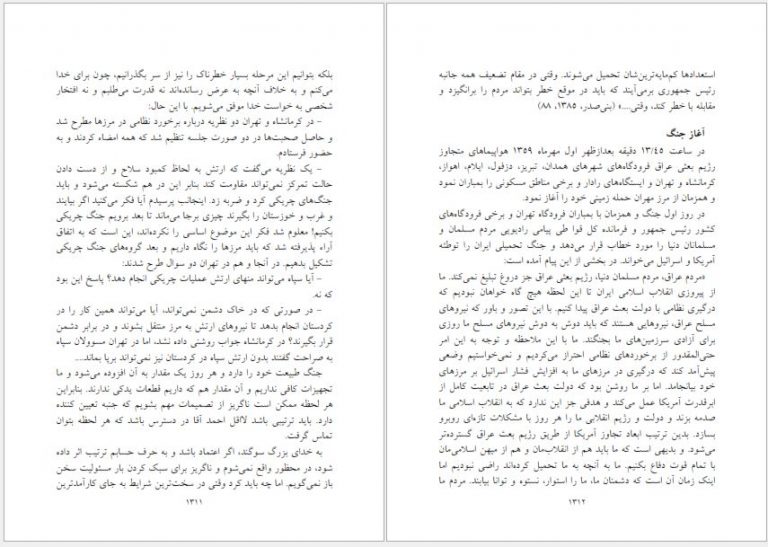 بلکه بتوانیم این مرحله بسیار خطرناک را نیز از سر بگذرانیم، چون برای خدا
می‌کنم و به خلاف آنچه به عرض رسانده‌اند نه قدرت می‌طلبم و نه افتخار
شخصی به خواست خدا موفق می‌شویم. با این حال:
– در کرمانشاه و تهران دو نظریه درباره برخورد نظامی در مرزها مطرح شد
و حاصل صحبت‌ها در دو صورت جلسه تنظیم شد که همه امضاء کردند و به
حضور فرستادم.
– یک نظریه می‌گفت که ارتش به لحاظ کمبود سلاح و از دست دادن
حالت تمرکز نمی‌تواند مقاومت کند بنابر این در هم شکسته می‌شود و باید
جنگ‌های چریکی کرد و ضربه زد. اینجانب پرسیدم آیا فکر می‌کنید اگر بیایند
و غرب و خوزستان را بگیرند چیزی برجا می‌ماند تا بعد برویم جنگ چریکی
بکنیم! معلوم شد فکر این موضوع اساسی را نکرده‌اند، این است که به اتفاق
آراء پذیرفته شد که باید مرزها را نگاه داریم و بعد گروه‌های جنگ چریکی
تشکیل بدهیم. در آنجا و هم در تهران دو سوال طرح شدند:
– آیا سپاه می‌تواند منهای ارتش عملیات چریکی انجام دهد؟ پاسخ این بود
که نه.
– در صورتی که در خاک دشمن نمی‌تواند، آیا می‌تواند همین کار را در
کردستان انجام بدهد تا نیروهای ارتش به مرز منتقل بشوند و در برابر دشمن
قرار بگیرند؟ در کرمانشاه جواب روشنی داده نشد، اما در تهران مسوولان سپاه
به صراحت گفتند بدون ارتش سپاه در کردستان نیز نمی‌تواند برپا بماند....
جنگ طبیعت خود را دارد و هر روز یک مقدار به آن افزوده می‌شود و ما
تجهیزات کافی نداریم و آن مقدار هم که داریم قطعات یدکی ندارند. بنابراین
هر لحظه ممکن است ناگزیر از تصمیمات مهم بشویم که جنبه تعیین کننده
دارد. باید ترتیبی باشد لااقل احمد آقا در دسترس باشد که هر لحظه بتوان
تماس گرفت.
به خدای بزرگ سوگند، اگر اعتماد باشد و به حرف حسابم ترتیب اثر داده
شود، در محظور واقع نمی‌شوم و ناگزیر برای سبک کردن بار مسئولیت سخن
باز نمی‌گویم. اما چه باید کرد وقتی در سخت‌ترین شرایط به جای کارآمدترین
۱۳۱۱
استعدادها کم‌مایه‌ترین‌شان تحمیل می‌شوند. وقتی در مقام تضعیف همه جانبه
رئیس جمهوری برمی‌آیند که باید در موقع خطر بتواند مردم را برانگیزد و
مقابله با خطر کند، وقتی....» (بنی‌صدر، ۱۳۸۵، ۸۸)
آغاز جنگ
در ساعت ۱۳/۴۵ دقیقه بعدازظهر اول مهرماه ۱۳۵۹ هواپیماهای متجاوز
رژیم بعثی عراق فرودگاه‌های شهرهای همدان، تبریز، دزفول، ایلام، اهواز،
کرمانشاه و تهران و ایستگاه‌های رادار و برخی مناطق مسکونی را بمباران نمود
و همزمان از مرز مهران حمله زمینی خود را آغاز نمود.
در روز اول جنگ و همزمان با بمباران فرودگاه تهران و برخی فرودگاه‌های
کشور رئیس جمهور و فرمانده کل قوا طی پیامی رادیویی مردم مسلمان و
مسلمانان دنیا را مورد خطاب قرار می‌دهد و جنگ تحمیلی ایران را توطئه
آمریکا و اسرائیل می‌خواند. در بخشی از این پیام آمده است:
«مردم عراق، مردم مسلمان دنیا، رژیم بعثی عراق جز دروغ تبلیغ نمی‌کند. ما
از پیروزی انقلاب اسلامی ایران تا این لحظه هیچ گاه خواهان نبودیم که
درگیری نظامی با دولت بعث عراق پیدا کنیم. با این تصور و باور که نیروهای
مسلح عراق، نیروهایی هستند که باید دوش به دوش نیروهای مسلح ما روزی
برای آزادی سرزمین‌های ما بجنگند. ما با این ملاحظه و توجه به این امر
حتی‌المقدور از برخوردهای نظامی احتراز می‌کردیم و نمی‌خواستیم وضعی
پیش‌آمد کند که درگیری در مرزهای ما به افزایش فشار اسرائیل بر مرزهای
خود بیانجامد. اما بر ما روشن بود که دولت بعث عراق در تابعیت کامل از
ابرقدرت آمریکا عمل می‌کند و هدفی جز این ندارد که به انقلاب اسلامی ما
صدمه بزند و دولت و رژیم انقلابی ما را هر روز با مشکلات تازه‌ای روبرو
بسازد. بدین ترتیب ابعاد تجاوز آمریکا از طریق رژیم بعث عراق گسترده‌تر
می‌شود. و بدیهی است که ما باید هم از انقلاب‌مان و هم از میهن اسلامی‌مان
با تمام قوت دفاع بکنیم. ما به آنچه به ما تحمیل کرده‌اند راضی نبودیم اما
اینک زمان آن است که دشمنان ما، ما را استوار، نستوه و توانا بیابند. مردم ما
۱۳۱۲